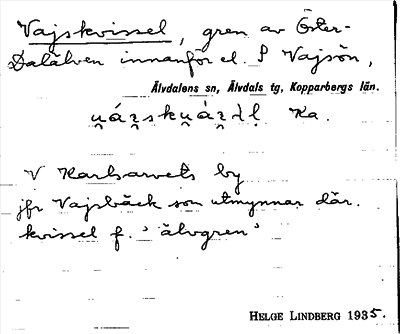 Vajskvissel, gren av Öster-
Dalälven innanför el. S Vajsön,
Älvdalens sn, Älvdals tg, Kopparbergs län.
Ka.
V Karlsarvets by
jfr Vajsbäck som utmynnar där.
kvissel f. 'älvgren'
HELGE LINDBERG 1935.